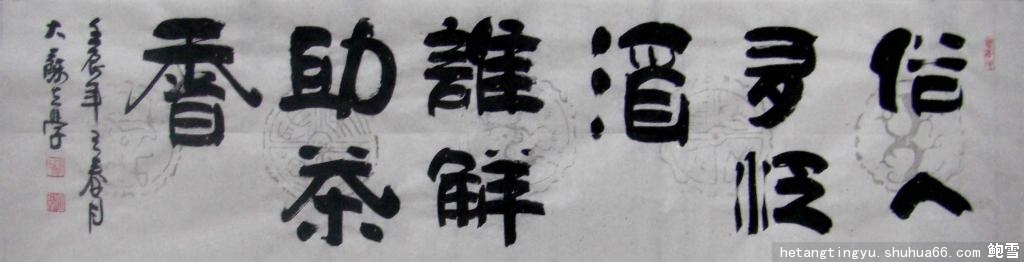 俗人
多泛
酒
誰解
助茶
香
壬辰年之春月
大
hetangtingyu.shuhua66.com 鲍雪